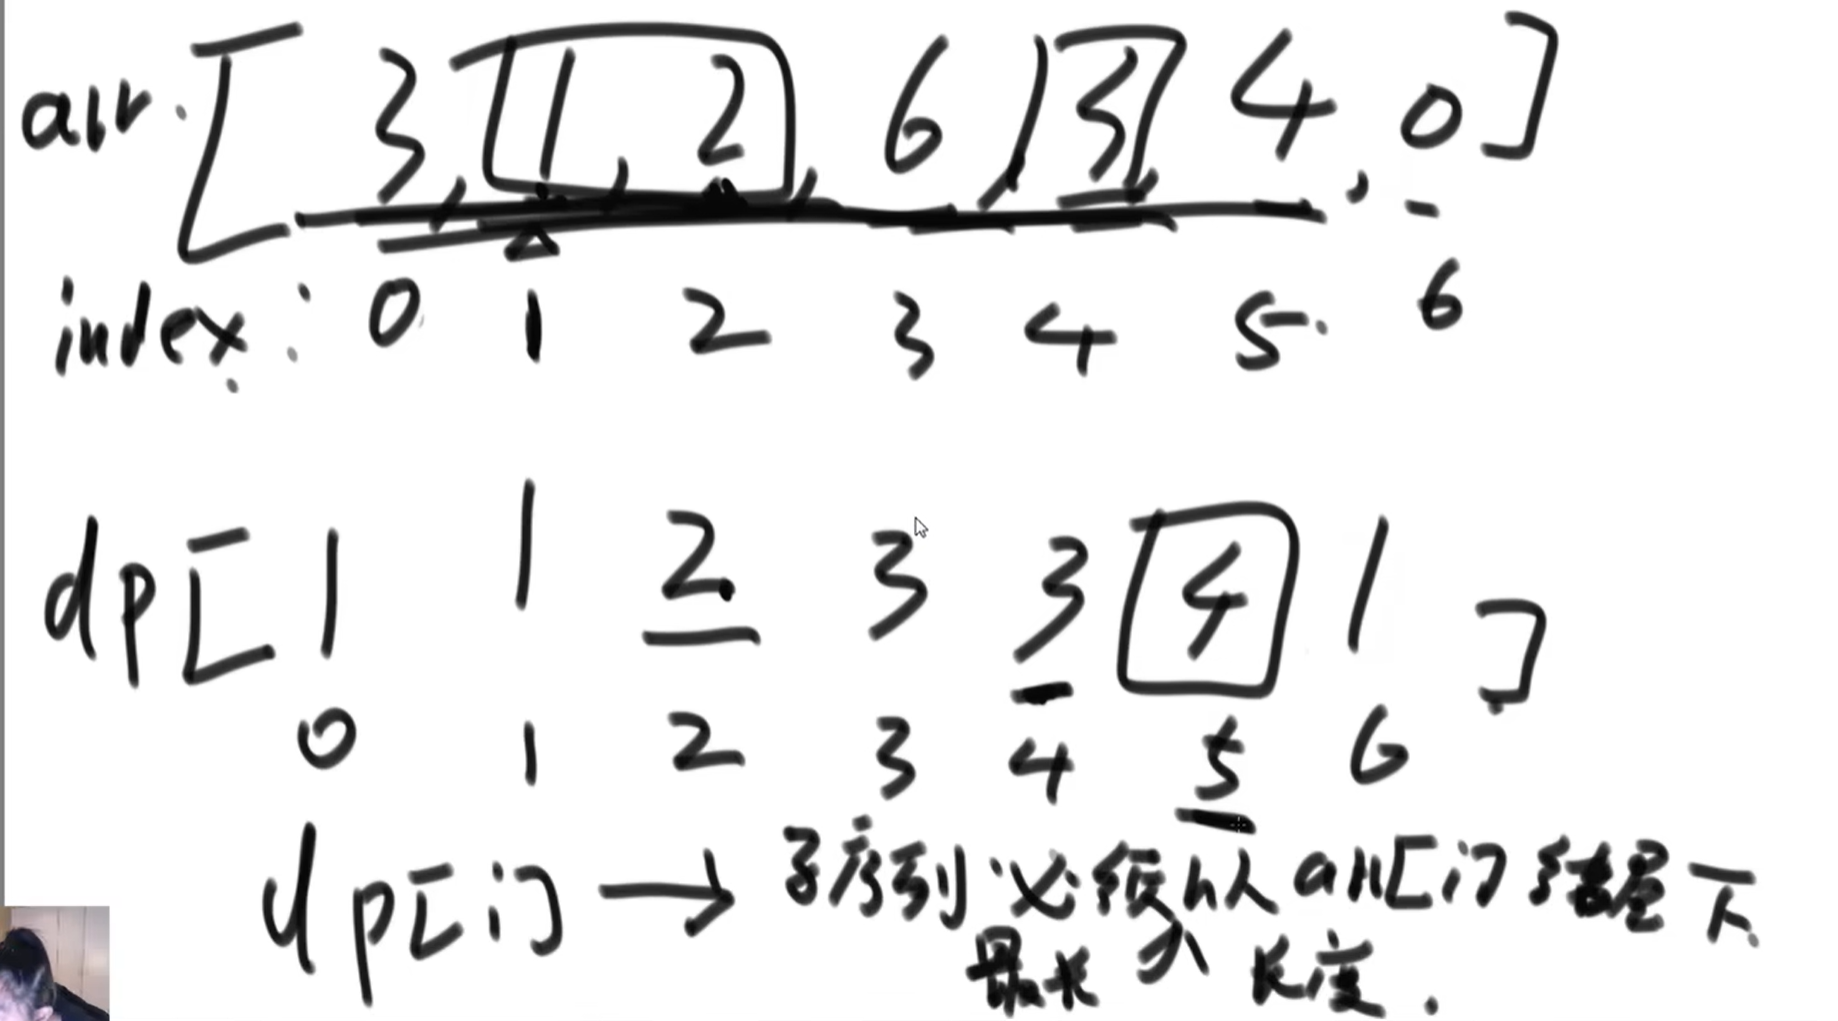 arr: [ 3, 1, 2, 6, 3, 4, 0 ]
index: 0 1 2 3 4 5 6
dp [ 1 1 2 3 3 4 1 ]
0 1 2 3 4 5 6
dp[i] → 子序列必须以 arr[i] 结尾下
最长 长度.